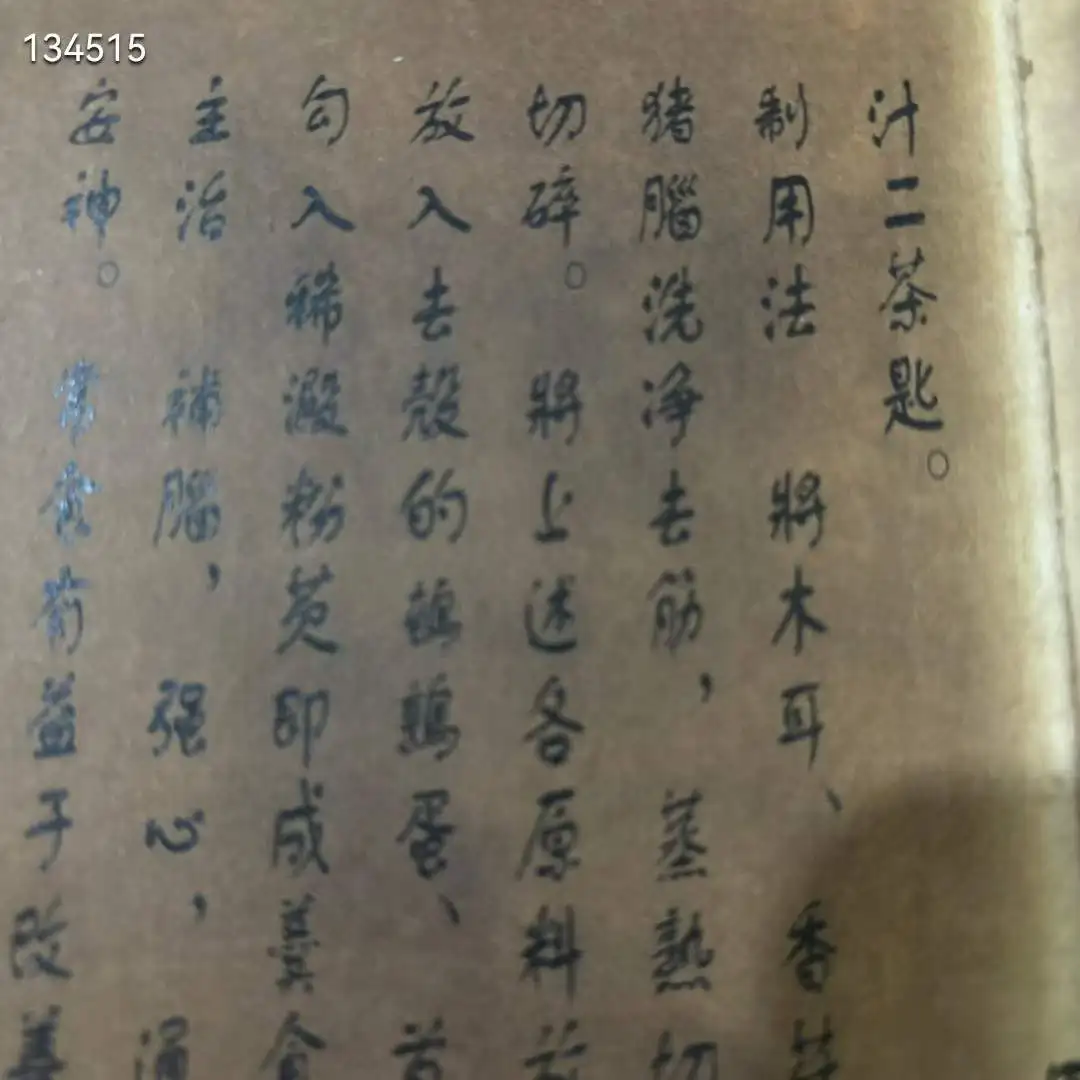 134515
汁二茶匙。
制用法 將木耳、香菇
猪腦洗净去筋，蒸熟切
切碎。將上述各原料放
放入去殼的鵪鶉蛋、首
勾入稀澱粉羹即成羹食
主治 補腦，强心，通
安神。常食有益于改善